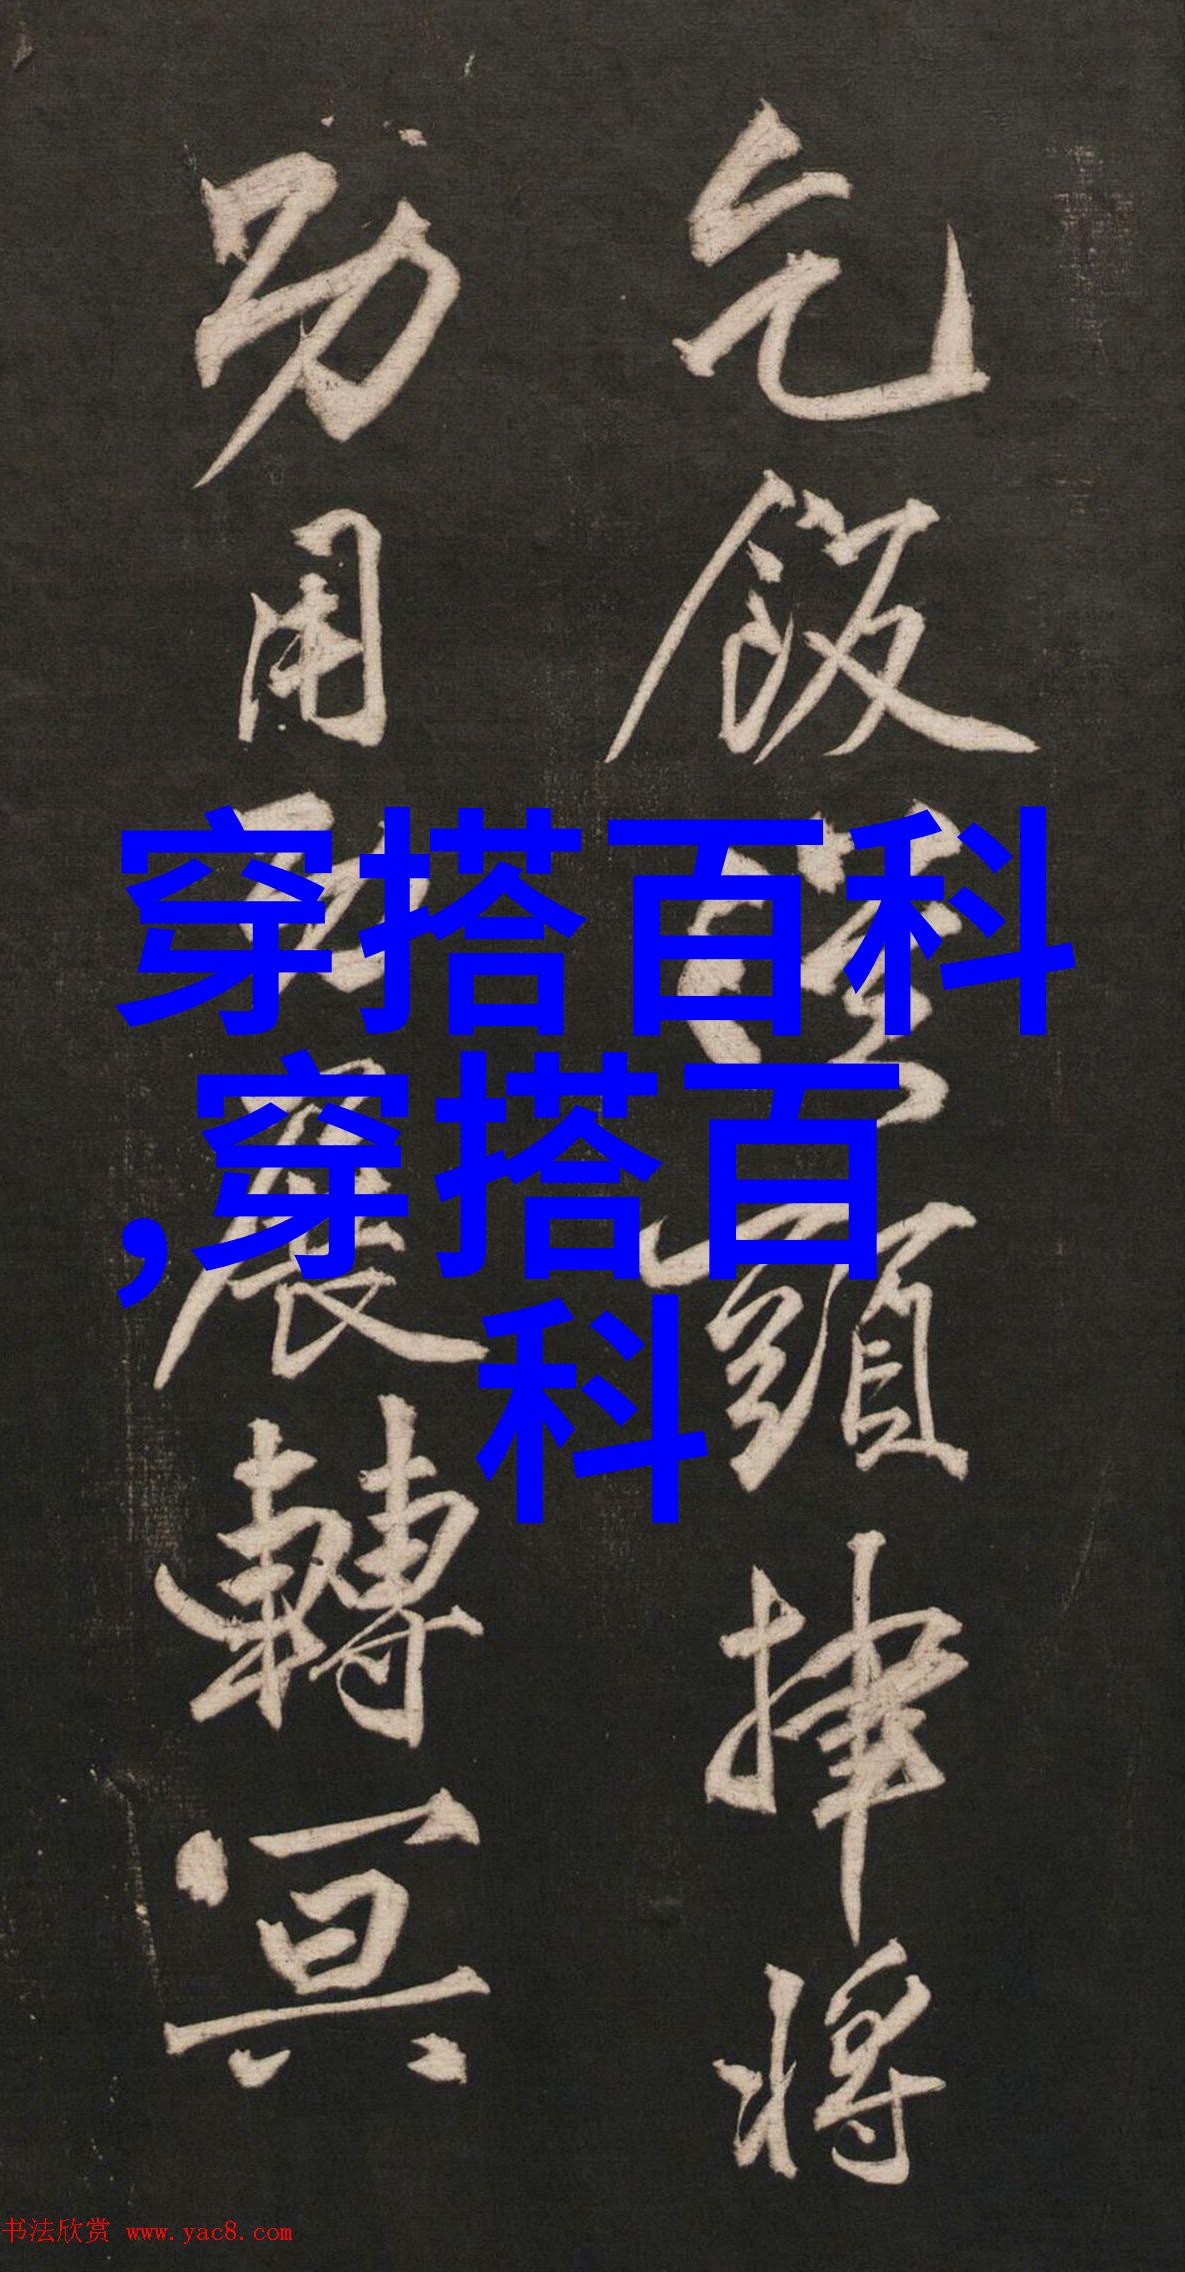 乞飯頭將
功用展轉冥
穿搭百科
,穿搭百
科
书法欣赏 www.yac8.com